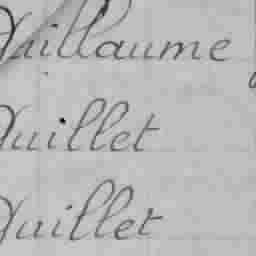 Guillaume
Guillet
Guillet